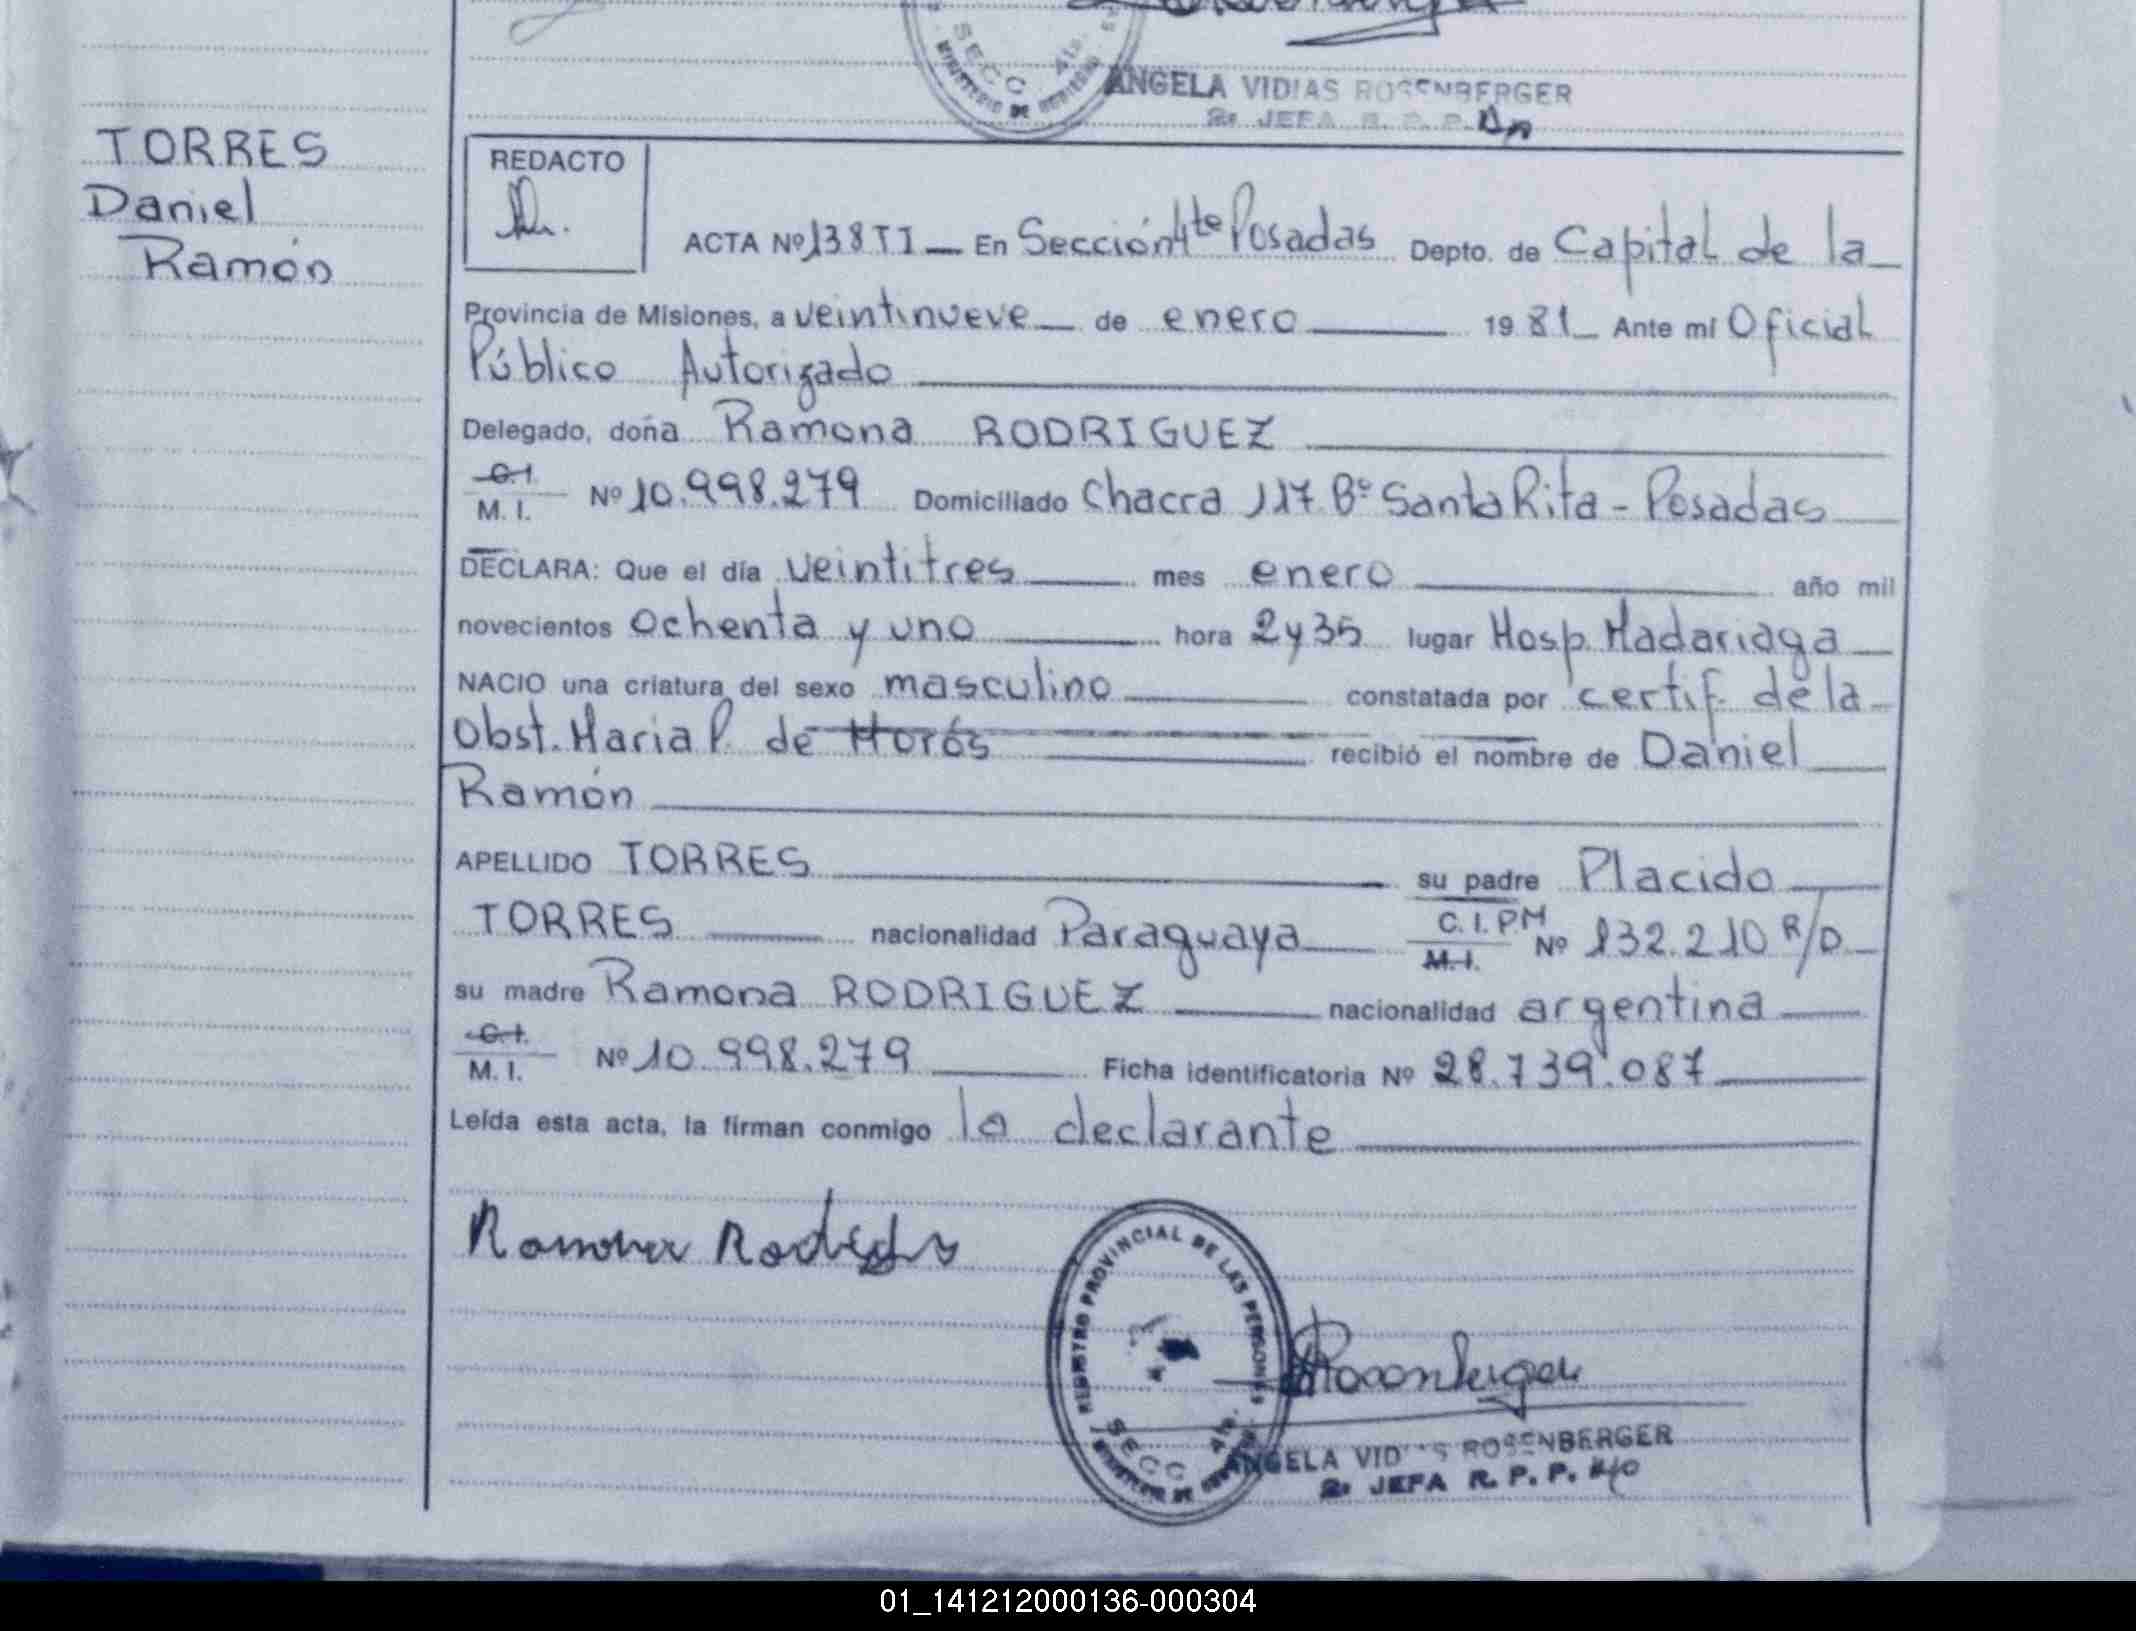 SECC 4ta.
MINISTERIO DE GOBIERNO
ANGELA VIDIAS ROSENBERGER
2a JEFA R. P. P.
TORRES
Daniel
Ramón
REDACTO
ACTA Nº 138 TI En Sección 4ta Posadas Depto. de Capital de la
Provincia de Misiones, a veintinueve de enero 1981 Ante mí Oficial
Público Autorizado
Delegado, doña Ramona RODRIGUEZ
C.I.
M. I. Nº 10.998.279 Domiciliado Chacra 117 Bº Santa Rita - Posadas
DECLARA: Que el día veintitres mes enero año mil
novecientos ochenta y uno hora 2 y 35 lugar Hosp. Madariaga
NACIO una criatura del sexo masculino constatada por certif. de la
Obst. Maria P. de Morós recibió el nombre de Daniel
Ramón
APELLIDO TORRES su padre Placido
TORRES nacionalidad Paraguaya C. I. PM
M. I. Nº 132.210 R/D
su madre Ramona RODRIGUEZ nacionalidad argentina
C.I.
M. I. Nº 10.998.279 Ficha identificatoria Nº 28.739.087
Leída esta acta, la firman conmigo la declarante
REGISTRO PROVINCIAL DE LAS PERSONAS
SECC 4ta.
MINISTERIO DE GOBIERNO
Rosenberger
ANGELA VIDIAS ROSENBERGER
2a JEFA R. P. P.
01_141212000136-000304